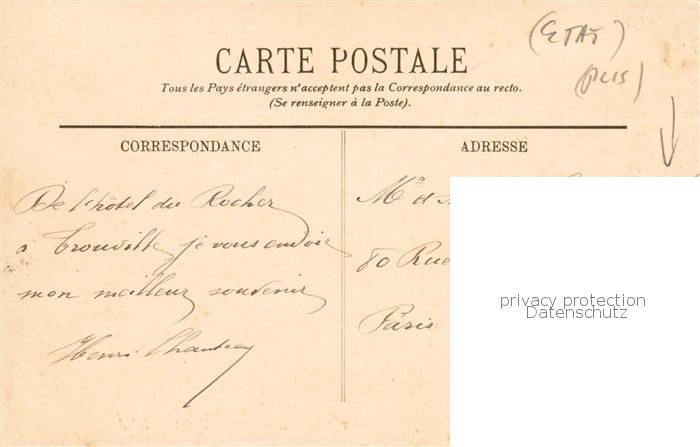 (ETAT)
(PLIS)
CARTE POSTALE
Tous les Pays étrangers n'acceptent pas la Correspondance au recto.
(Se renseigner à la Poste).
CORRESPONDANCE
ADRESSE
De l'hôtel du Rocher
à Trouville, je vous envoie
mon meilleur souvenir
Henri
Mr et
80 Rue
Paris
privacy protection
Datenschutz